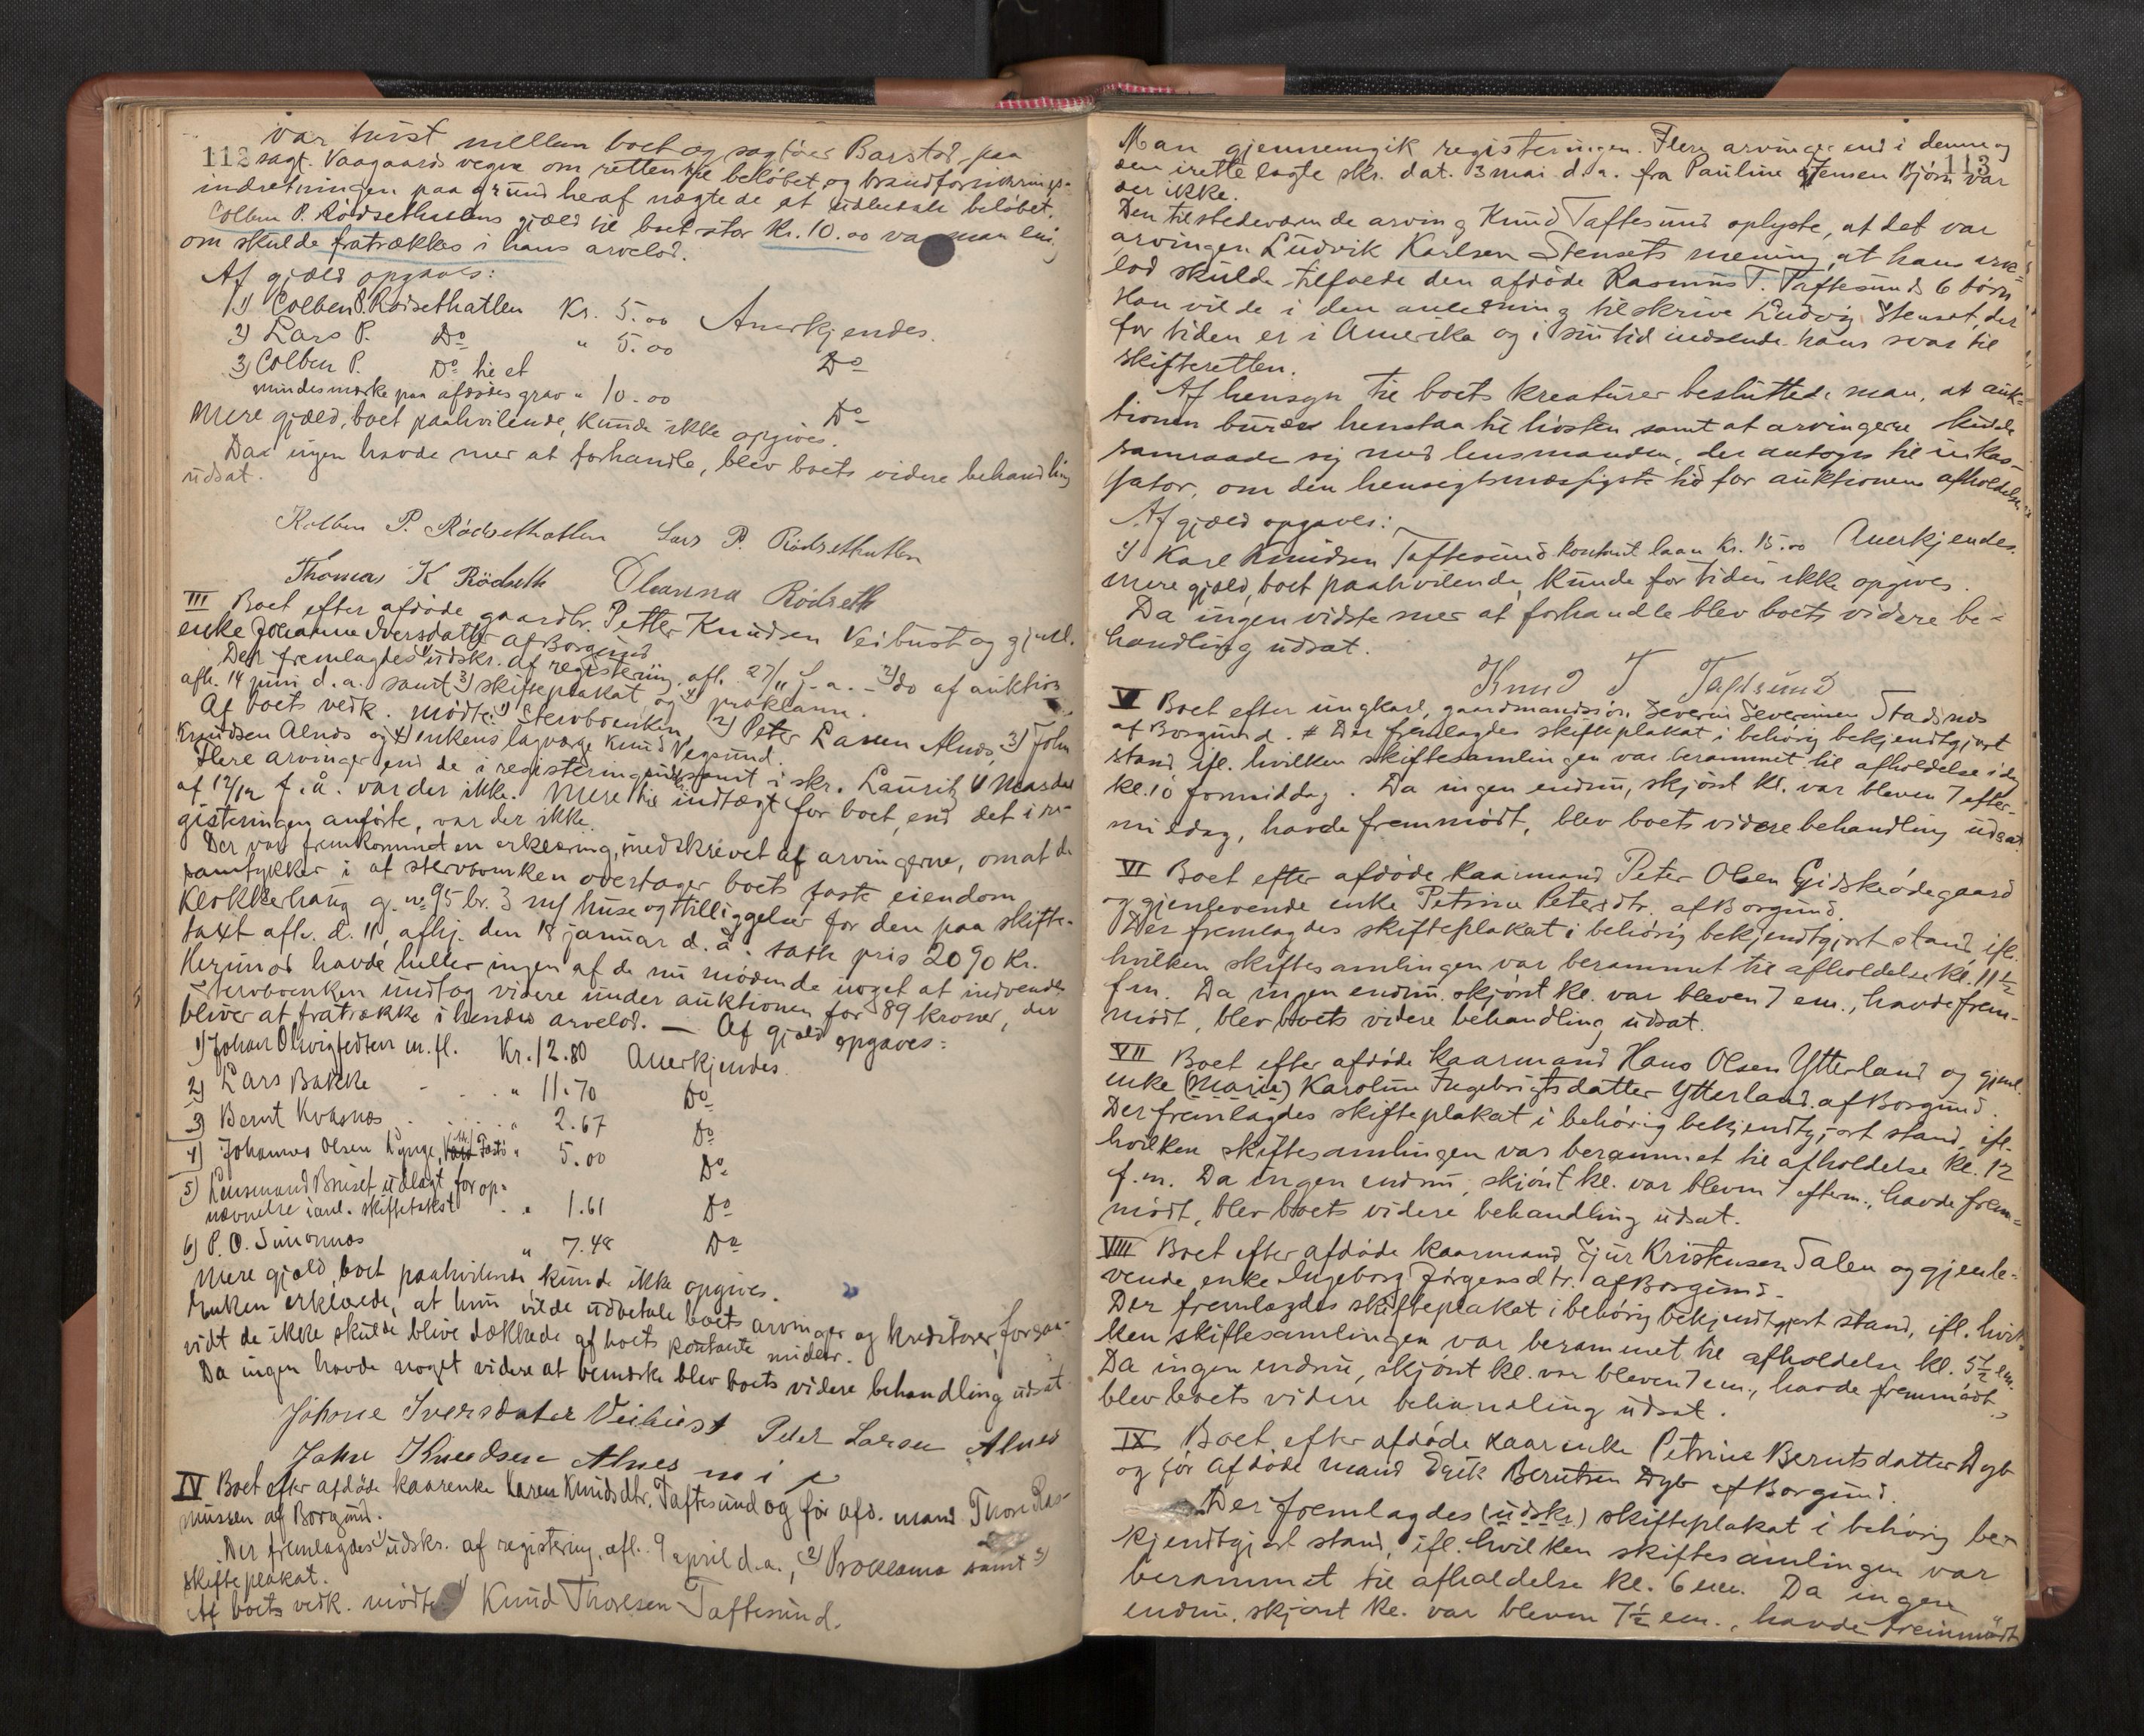 112
var tvist mellem boet og sagfører Barstad paa
sagf. Vaagaards vegne om retten til beløbet, og brandforsikrings-
indretningen paa grund heraf nægtede at udbetale beløbet.
Colben P. Rødsethatlens gjæld til boet stor Kr. 10.00 var man enig
om skulde fratrækkes i hans arvelod.
Af gjæld opgaves:
1) Colben P. Rødsethatlen Kr. 5.00 Anerkjendes.
2) Lars P. Do " 5.00 Do
3) Colben P. Do til et
mindesmærke paa afdødes grav " 10.00 Do
Mere gjæld, boet paahvilende, kunde ikke opgives.
Da ingen havde mer at forhandle, blev boets videre behandling
udsat.
Kolben P. Rødsethatlen Lars P. Rødsethatlen
Thomas K Rödseth Oleanna Rødseth
III Boet efter afdøde gaardbr. Petter Knudsen Veibust og gjenl.
enke Johanne Iversdatter af Borgund
Der fremlagdes 1) udskr. af registering afh. 27/11 f. a. - 2) do af auktion
afh. 14 juni d. a. samt 3) skifteplakat og 4) proklama.
Af boets vedk. mødte: 1) Stervboenken, 2) Peter Larsen Alnes, 3) John
Knudsen Alnes og 4) enkens lagværge Knud Vegsund.
Flere arvinger end de i registeringen samt i skr. Lauritz
af 12/12 f. å. var der ikke. Mere til indtægt for boet, end det i re-
gisteringen anførte, var der ikke.
Der var fremkommet en erklæring, underskrevet af arvingerne, om at de
samtykker i at stervboenken overtager boets faste eiendom
Klokkerhaug g. no 95 br. 3 m/ huse og tilliggelser for den paa skifte-
taxt afh. d. 11, afhj. den 18 januar d. å. satte pris 2090 kr.
Herimod havde heller ingen af de nu mødende noget at indvende.
Stervboenken undtog videre under auktionen for 89 kroner, der
bliver at fratrække i hendes arvelod. — Af gjæld opgaves:
1) Johan m. fl. Kr. 12.80 Anerkjendes.
2) Lars Bakke " 11.70 Do
3) Bernt Kvasnes " 2.67 Do
4) Johannes Olsen Lynge, " 5.00 Do
5) Lensmand Bruset udlagt for op-
nævnelse i anl. skiftetakst " 1.61 Do
6) P. O. Simonnæs " 7.48 Do
Mere gjæld, boet paahvilende, kunde ikke opgives.
Enken erklærede, at hun vilde udbetale boets arvinger og kreditorer, forsaa-
vidt de ikke skulde blive dækkede af boets kontante midler.
Da ingen havde noget videre at bemærke blev boets videre behandling udsat
Johane Iversdater Veibust Peter Larsen Alnes
John Knudsen Alnes m i p
IV Boet efter afdøde kaarenke Karen Knudsdtr. Taftesund og før afd. mand Thore Ras-
mussen af Borgund.
Der fremlagdes 1) udskr. af registering, afh. 9 april d. a., 2) Proklama samt 3)
skifteplakat.
Af boets vedk. mødte 1) Knud Thoresen Taftesund.
113
Man gjennemgik registeringen. Flere arvinger end i denne og
den irettelagte skr. dat. 3 mai d. a. fra Pauline Jensen Bjørn var
der ikke.
Den tilstedeværende arving Knud Taftesund oplyste, at det var
arvingen Ludvik Karlsen Stensets mening, at hans arve-
lod skulde tilfalde den afdøde Rasmus T. Taftesunds 6 børn
Han vilde i den anledning tilskrive Ludvig Stenset, der
for tiden er i Amerika og i sin tid indsende hans svar til
skifteretten.
Af hensyn til boets kreaturer besluttede man, at auk-
tionen burde henstaa til høsten samt at arvingerne skulde
samraade sig med lensmanden, der antoges til inkas-
sator, om den hensigtsmæssigste tid for auktionens afholdelse
Af gjæld opgaves:
1) Karl Knudsen Taftesund kontant laan Kr. 15.00 Anerkjendes.
Mere gjæld, boet paahvilende, kunde for tiden ikke opgives.
Da ingen vidste mer at forhandle blev boets videre be-
handling udsat.
Knud T Taftsund
V Boet efter ungkarl, gaardmandssøn Severin Severinsen Stadsnes
af Borgund. # Der fremlagdes skifteplakat i behørig bekjendtgjort
stand ifl. hvilken skiftesamlingen var berammet til afholdelse idag
kl. 10 formiddag. Da ingen endnu, skjønt kl. var bleven 7 efter-
middag, havde fremmødt, blev boets videre behandling udsat.
VI Boet efter afdøde kaarmand Peter Olsen Gjidskeødegaard
og gjenlevende enke Petrine Petersdtr. af Borgund.
Der fremlagdes skifteplakat i behørig bekjendtgjort stand, ifl.
hvilken skiftesamlingen var berammet til afholdelse kl. 11½
f. m. Da ingen endnu, skjønt kl. var bleven 7 em., havde frem-
mødt, blev boets videre behandling udsat.
VII Boet efter afdøde kaarmand Hans Olsen Ytterland og gjenl.
enke (Marie) Karoline Ingebrigtsdatter Ytterland af Borgund.
Der fremlagdes skifteplakat i behørig bekjendtgjort stand, ifl.
hvilken skiftesamlingen var berammet til afholdelse kl. 12
f. m. Da ingen endnu, skjønt kl. var bleven 7 efterm., havde frem-
mødt, blev boets videre behandling udsat.
VIII Boet efter afdøde kaarmand Sjur Kristensen Dalen og gjenle-
vende enke Ingeborg Jørgensdtr. af Borgund.
Der fremlagdes skifteplakat i behørig bekjendtgjort stand, ifl. hvil-
ken skiftesamlingen var berammet til afholdelse kl. 5½ em.
Da ingen endnu, skjønt kl. var bleven 7 em., havde fremmødt,
blev boets videre behandling udsat.
IX Boet efter afdøde kaarenke Petrine Berntsdatter Dyb
og før afdøde mand Erik Berntsen Dyb af Borgund.
Der fremlagdes (udskr.) skifteplakat i behørig be-
kjendtgjort stand, ifl. hvilken skiftesamlingen var
berammet til afholdelse kl. 6 em. Da ingen
endnu, skjønt kl. var bleven 7½ em., havde fremmødt